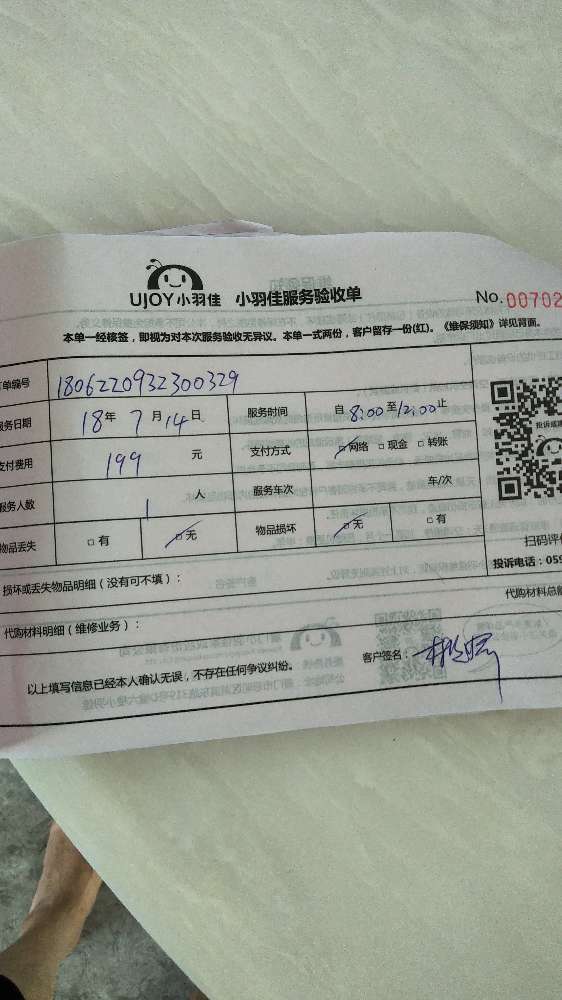 UJOY小羽佳 小羽佳服务验收单 No. 00702
本单一经核签，即视为对本次服务验收无异议。本单一式两份，客户留存一份(红)。《维保须知》详见背面。
单编号 1806220932300329
服务日期 18年 7月 14日 服务时间 自 8:00 至 12:00 止
支付费用 199 元 支付方式 □网络 □现金 □转账
服务人数 1 人 服务车次 车/次
物品丢失 □有 □无 物品损坏 □无 □有
投诉或
扫码评
投诉电话：059
损坏或丢失物品明细（没有可不填）：
代购材料总
代购材料明细（维修业务）：
以上填写信息已经本人确认无误，不存在任何争议纠纷。 客户签名：